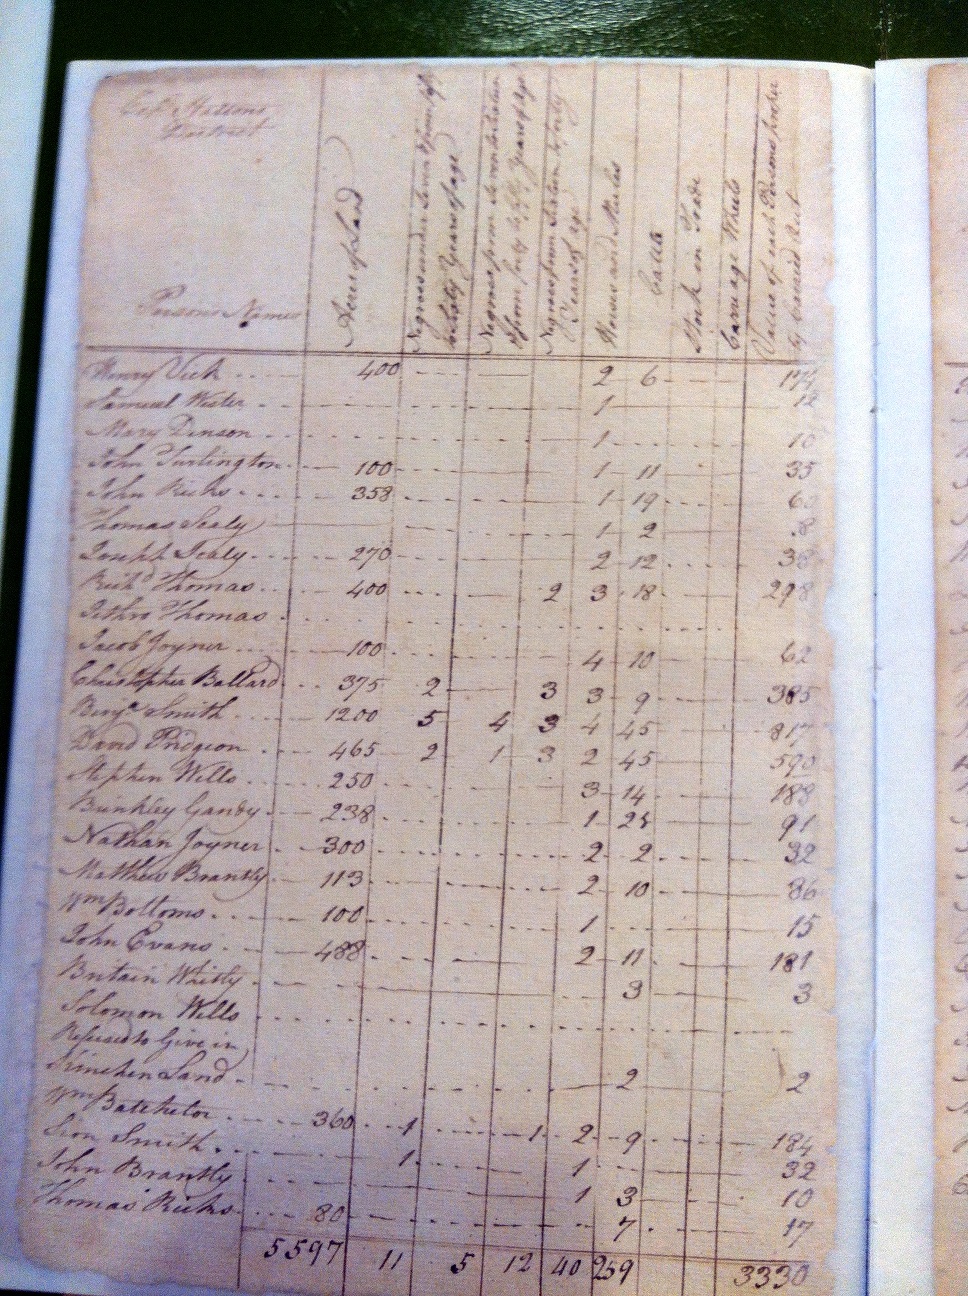 District
Persons Names
Acres of Land
Negroes under Years of age
Negroes from Years of age
Negroes from Sixteen to forty Years of age
Horses and Mules
Cattle
Stock in Trade
Carriage Wheels
Value of each Persons
Henry Vick 400 2 6 174
Samuel Wester 1 12
Mary Denson 1 10
John Turlington 100 1 11 35
John Ricks 358 1 19 62
Thomas Sealy 1 2 8
Joseph Sealy 270 2 12 38
Richd Thomas 400 2 3 18 298
Jethro Thomas
Jacob Joyner 100 4 10 62
Christopher Ballard 375 2 3 3 9 385
Benjn Smith 1200 5 4 3 4 45 817
David Pridgeon 465 2 1 3 2 45 590
Stephen Wells 250 3 14 188
Brinkley Gandy 238 1 25 91
Nathan Joyner 300 2 2 32
Matthew Brantly 113 2 10 86
Wm Bottoms 100 1 15
John Evans 488 2 11 181
Britain Whitly 3 3
Solomon Wells
Refused to Give in
Land 2 2
Wm Batchelor 360 1 1 2 9 184
Sion Smith 1 1 32
John Brantly 1 3 10
Thomas Ricks 80 7 17
5597 11 5 12 40 259 3330